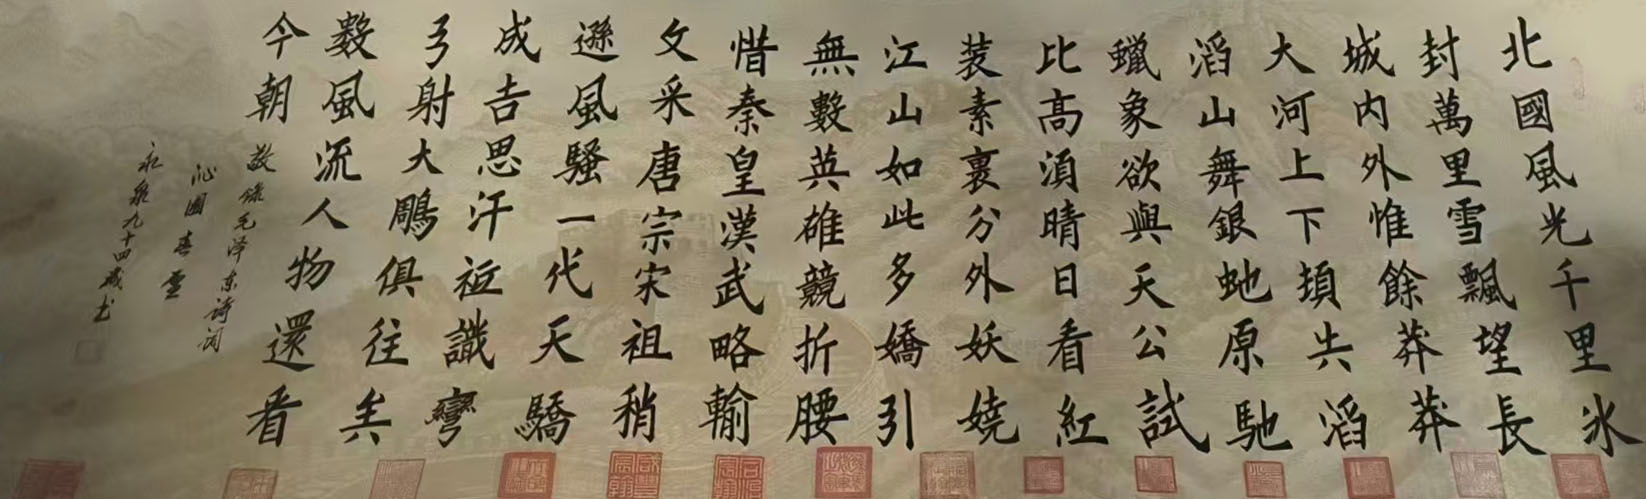 北國風光千里氷
封萬里雪飄望長
城内外惟餘莽莽
大河上下頓失滔
滔山舞銀虵原馳
蠟象欲與天公試
比高須晴日看紅
装素裹分外妖娆
江山如此多嬌引
無數英雄競折腰
惜秦皇漢武略輸
文采唐宗宋祖稍
遜風騷一代天驕
成吉思汗衹識彎
弓射大鵰俱往矣
數風流人物還看
今朝
敬録毛泽东诗词
沁園春雪
永泉九十四歲书